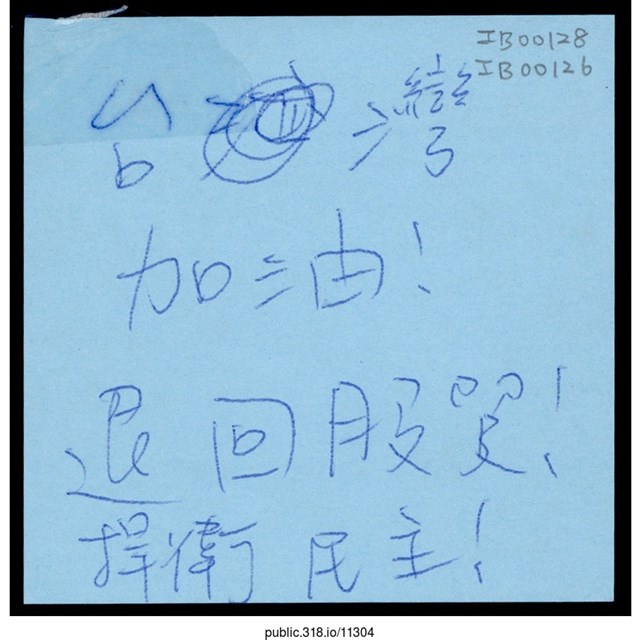 IB00128
IB00126
台灣
加油!
退回服貿!
捍衛民主!
public.318.io/11304